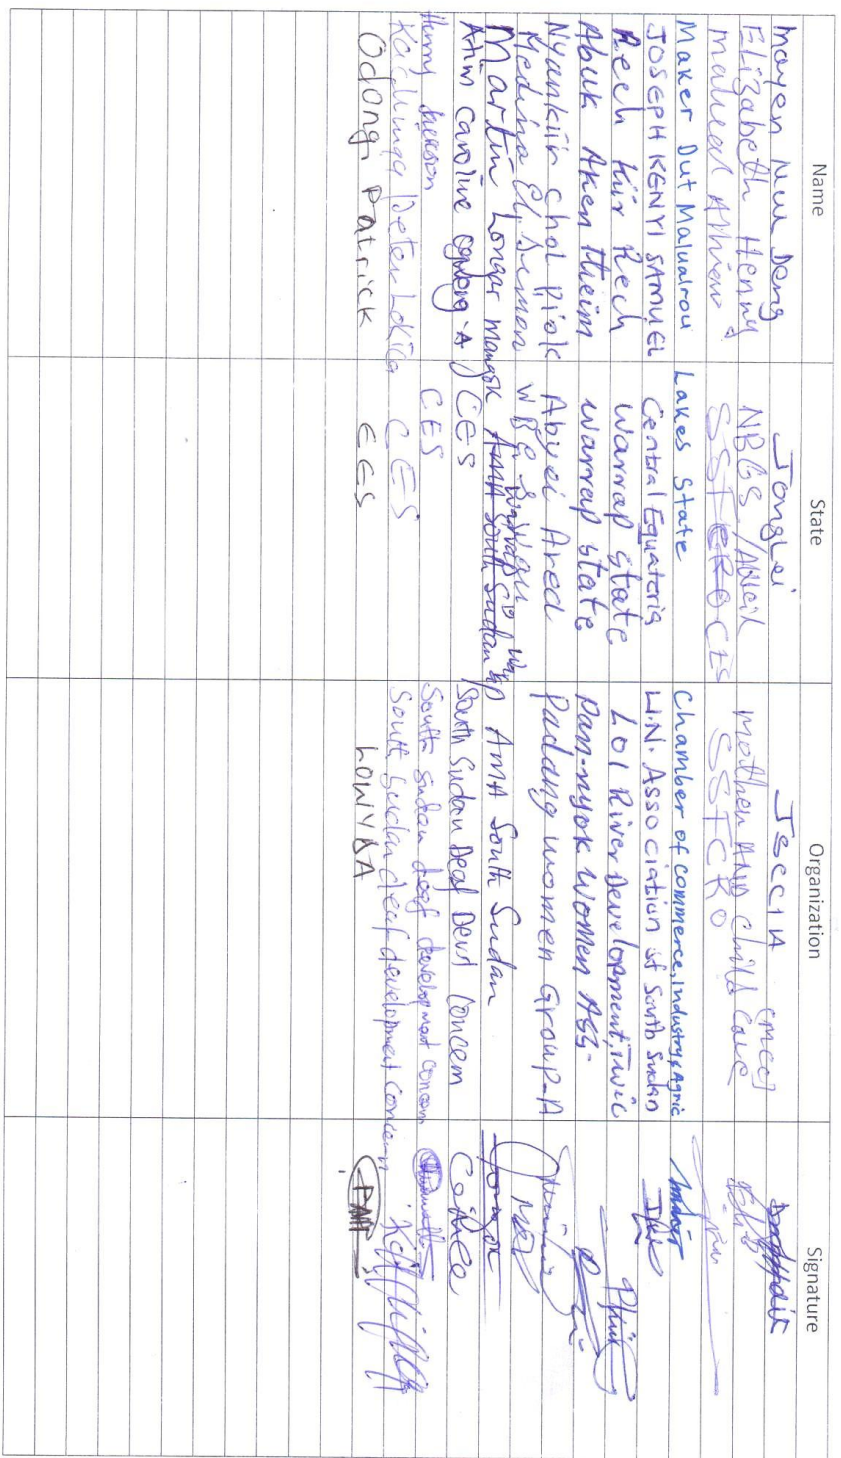 Name State Organization Signature
Mayen Nul Deng Jonglei JSCCIA
Elizabeth Henny NBGS /Aweil mother AND child care (mcc)
malual Athien SSFCRO CES SSFCRO
Maker Dut Malualrou Lakes State Chamber of commerce, Industry, & Agric
JOSEPH KENYI SAMUEL Central Equatoria U.N. Association of South Sudan
Rech Kur Rech Warrap state LOL River Development, Twic
Abuk Aken Theim warrap state pan-nyok Women ASS-
Nyankiir Chol Piok Abyei Area Padang women Group-A
Medina El. Simon WBG
Martin Longar mangok AMA South Sudan AMA South Sudan
Atim Caroline A CES South Sudan Deaf Devt Concern
Henry CES South sudan deaf development concern
Peter Lokita CES South Sudan deaf development Concern
Odong Patrick EES